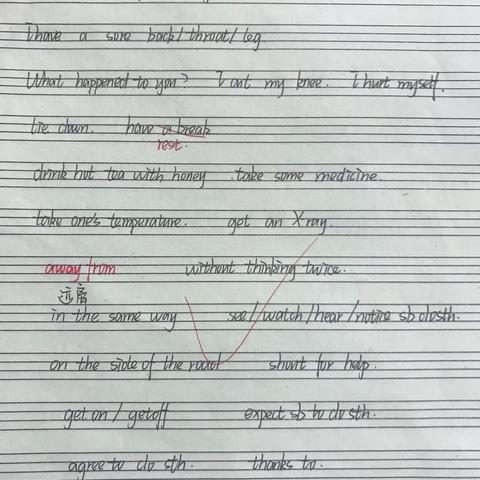 I have a sore back/throat/leg
What happened to you? I cut my knee. I hurt myself.
lie down. have a break
rest.
drink hot tea with honey take some medicine.
take one's temperature. get an X ray.
away from without thinking twice.
远离
in the same way see/watch/hear/notice sb do sth.
on the side of the road shout for help.
get on / get off expect sb to do sth.
agree to do sth. thanks to.